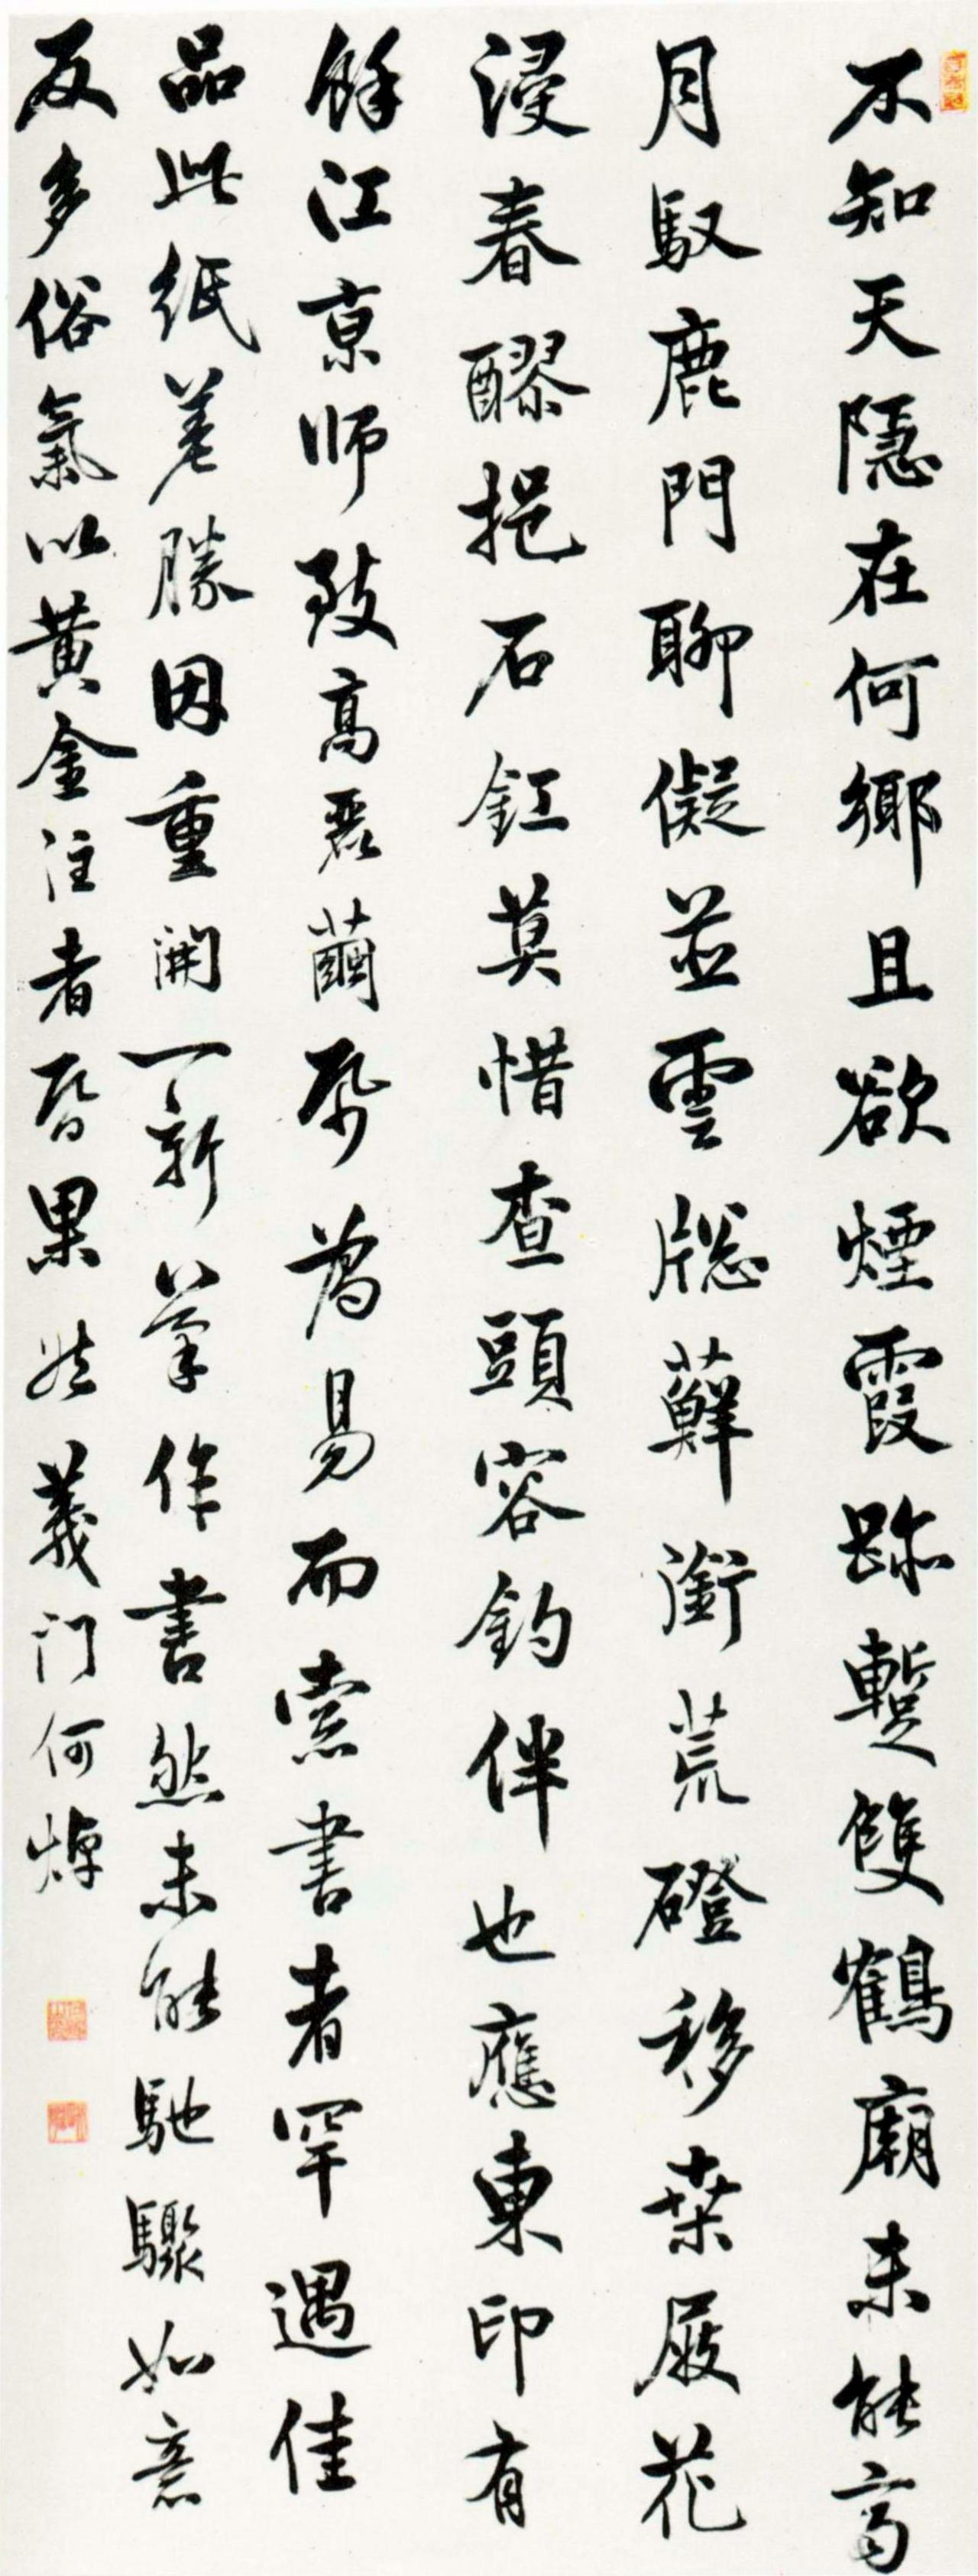 不知天隱在何鄉且欲煙霞跡蹔雙鶴廟未能齊
月馭鹿門聊儗並雲牕蘚銜荒磴移桑屐花
浸春醪挹石釭莫惜查頭容釣伴也應東印有
餘江京師致高麗繭帋為易而索書者罕遇佳
品此紙差勝因重開一新筆作書然未能馳驟如意
反多俗氣以黃金注者昏果然義門何焯